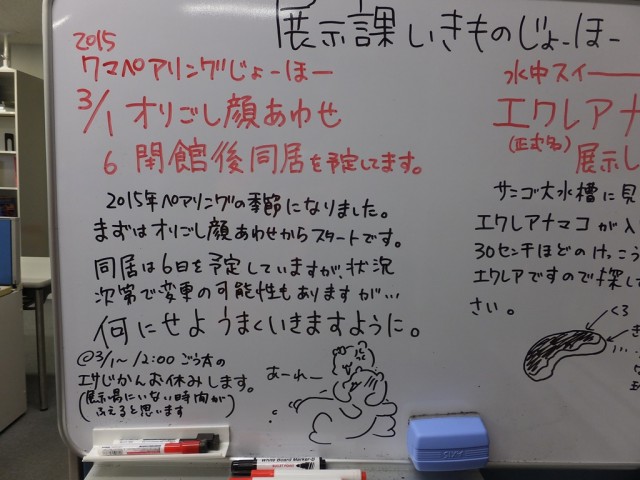 展示課いきものじょーほー
2015
クマペアリングじょーほー
3/1 オリごし顔あわせ
6 閉館後同居を予定してます。
2015年ペアリングの季節になりました。
まずはオリごし顔あわせからスタートです。
同居は6日を予定していますが、状況
次第で変更の可能性もありますが…
何にせようまくいきますように。
@3/1〜 12:00 ごう太の
エサじかんお休みします。
(展示場にいない時間が
ふえると思います)
あーれー
水中スイー
エクレアナマ
(正式名)
展示し
サンゴ大水槽に見
エクレアナマコが入
30センチほどのけっこう
エクレアですので探して
さい。
くろ
き